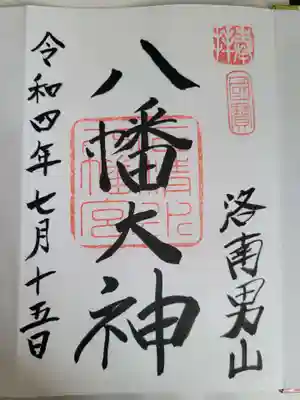 奉拝
國寶
洛南男山
八幡大神
石清水八幡宮
令和四年七月十五日